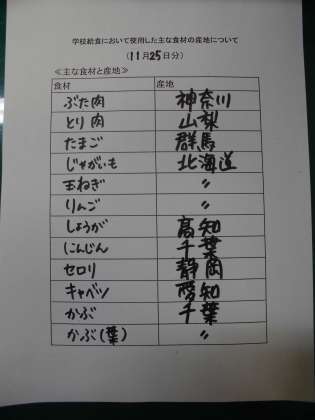 学校給食において使用した主な食材の産地について
(11月25日分)
≪主な食材と産地≫
食材 産地
ぶた肉 神奈川
とり肉 山梨
たまご 群馬
じゃがいも 北海道
玉ねぎ 〃
りんご 〃
しょうが 高知
にんじん 千葉
セロリ 静岡
キャベツ 愛知
かぶ 千葉
かぶ(葉) 〃